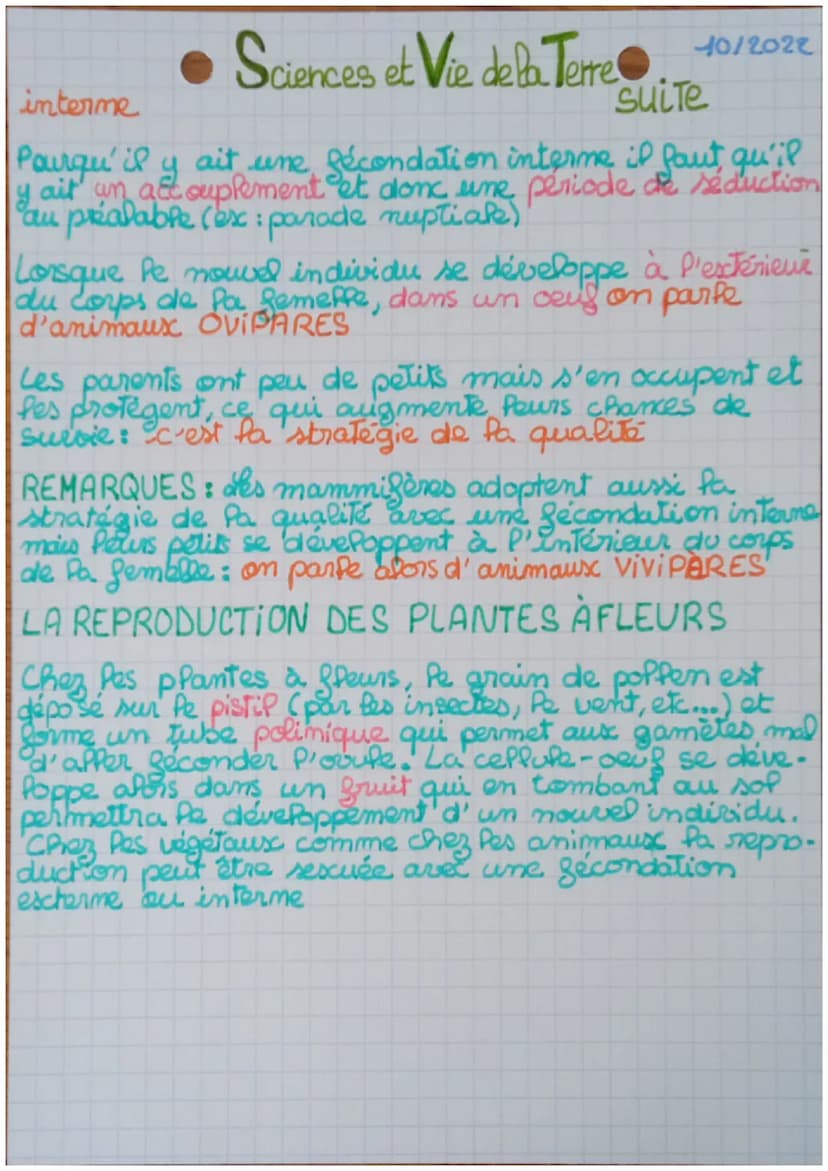 Sciences et Vie de la Terre 10/2022
suite
interne
Pourqu'il y ait une fécondation interne il faut qu'il
y ait un accouplement et donc une période de séduction
au préalable (ex : parade nuptiale)
Lorsque le nouvel individu se développe à l'extérieur
du corps de la femelle, dans un oeuf on parle
d'animaux OVIPARES
Les parents ont peu de petits mais s'en occupent et
les protègent, ce qui augmente leurs chances de
survie : c'est la stratégie de la qualité
REMARQUES : les mammifères adoptent aussi la
stratégie de la qualité avec une fécondation interne
mais leurs petits se développent à l'intérieur du corps
de la femelle : on parle alors d'animaux VIVIPÀRES
LA REPRODUCTION DES PLANTES À FLEURS
Chez les plantes à fleurs, le grain de pollen est
déposé sur le pistil (par les insectes, le vent, etc...) et
forme un tube polinique qui permet aux gamètes mal
d'aller féconder l'ovule. La cellule-oeuf se déve-
loppe alors dans un fruit qui en tombant au sol
permettra le développement d'un nouvel individu.
Chez les végétaux comme chez les animaux la repro-
duction peut être sexuée avec une fécondation
externe ou interne